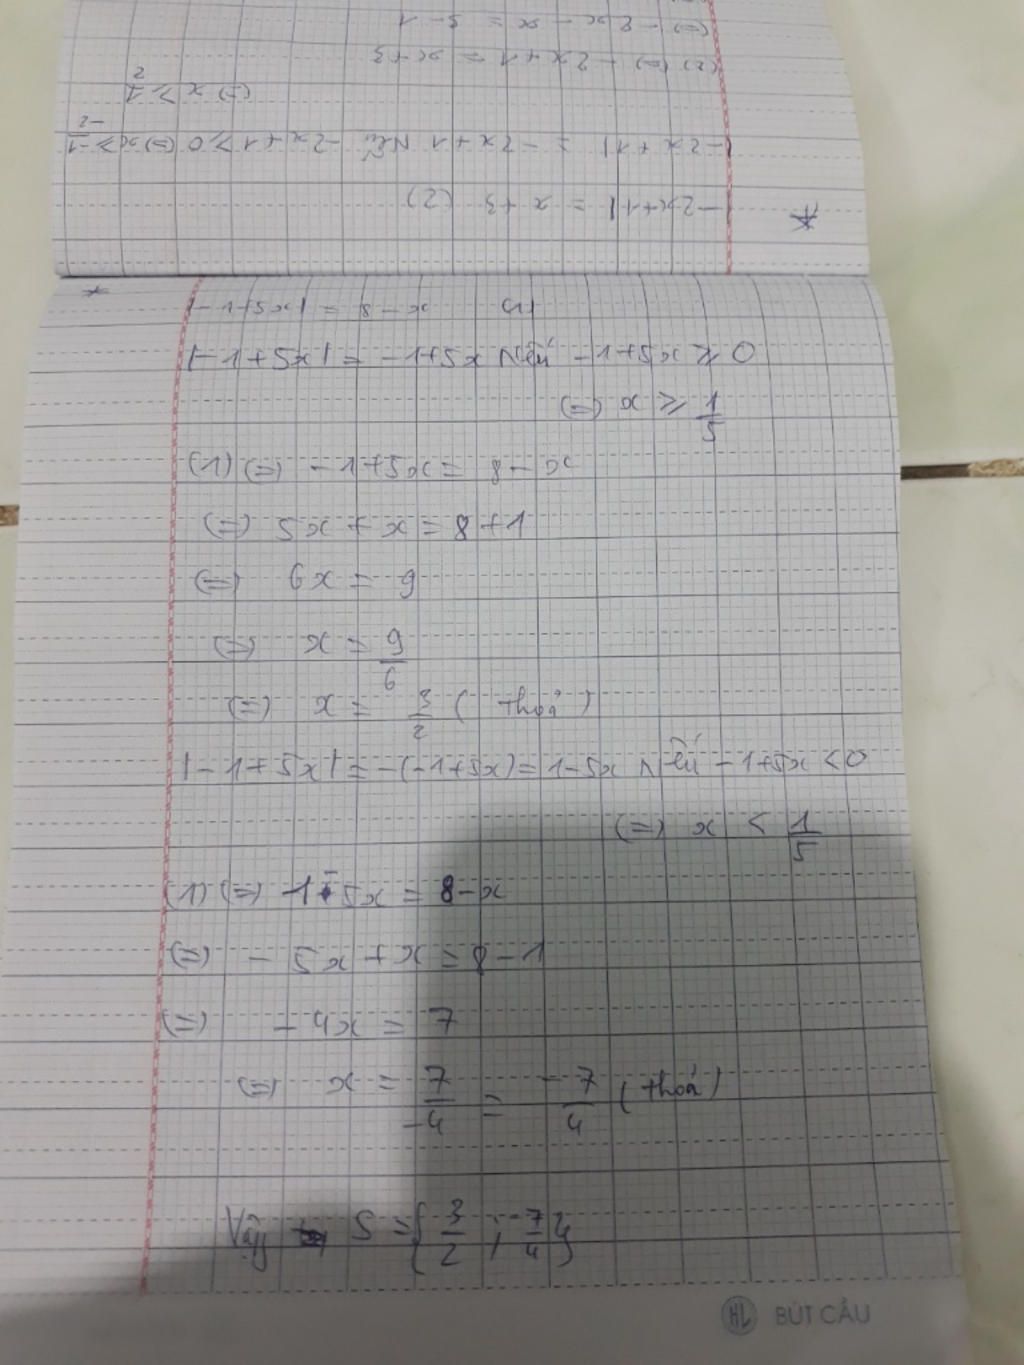 * |-2x+1| = x+3 (2)
|-2x+1| = -2x+1 Nếu -2x+1 ≥ 0 (=) x ≥ -1/-2
(=) x ≥ 1/2
(2) (=) -2x+1 = x+3
(=) -2x - x = 3-1
* |-1+5x| = 8-x (1)
|-1+5x| = -1+5x Nếu -1+5x ≥ 0
(=) x ≥ 1/5
(1) (=) -1+5x = 8-x
(=) 5x + x = 8+1
(=) 6x = 9
(=) x = 9/6
(=) x = 3/2 ( thoả )
|-1+5x| = -(-1+5x) = 1-5x Nếu -1+5x < 0
(=) x < 1/5
(1) (=) 1-5x = 8-x
(=) - 5x + x = 8-1
(=) - 4x = 7
(=) x = 7/-4 = -7/4 ( thoả )
Vậy S = { 3/2 ; -7/4 }
HL BÚT CẦU